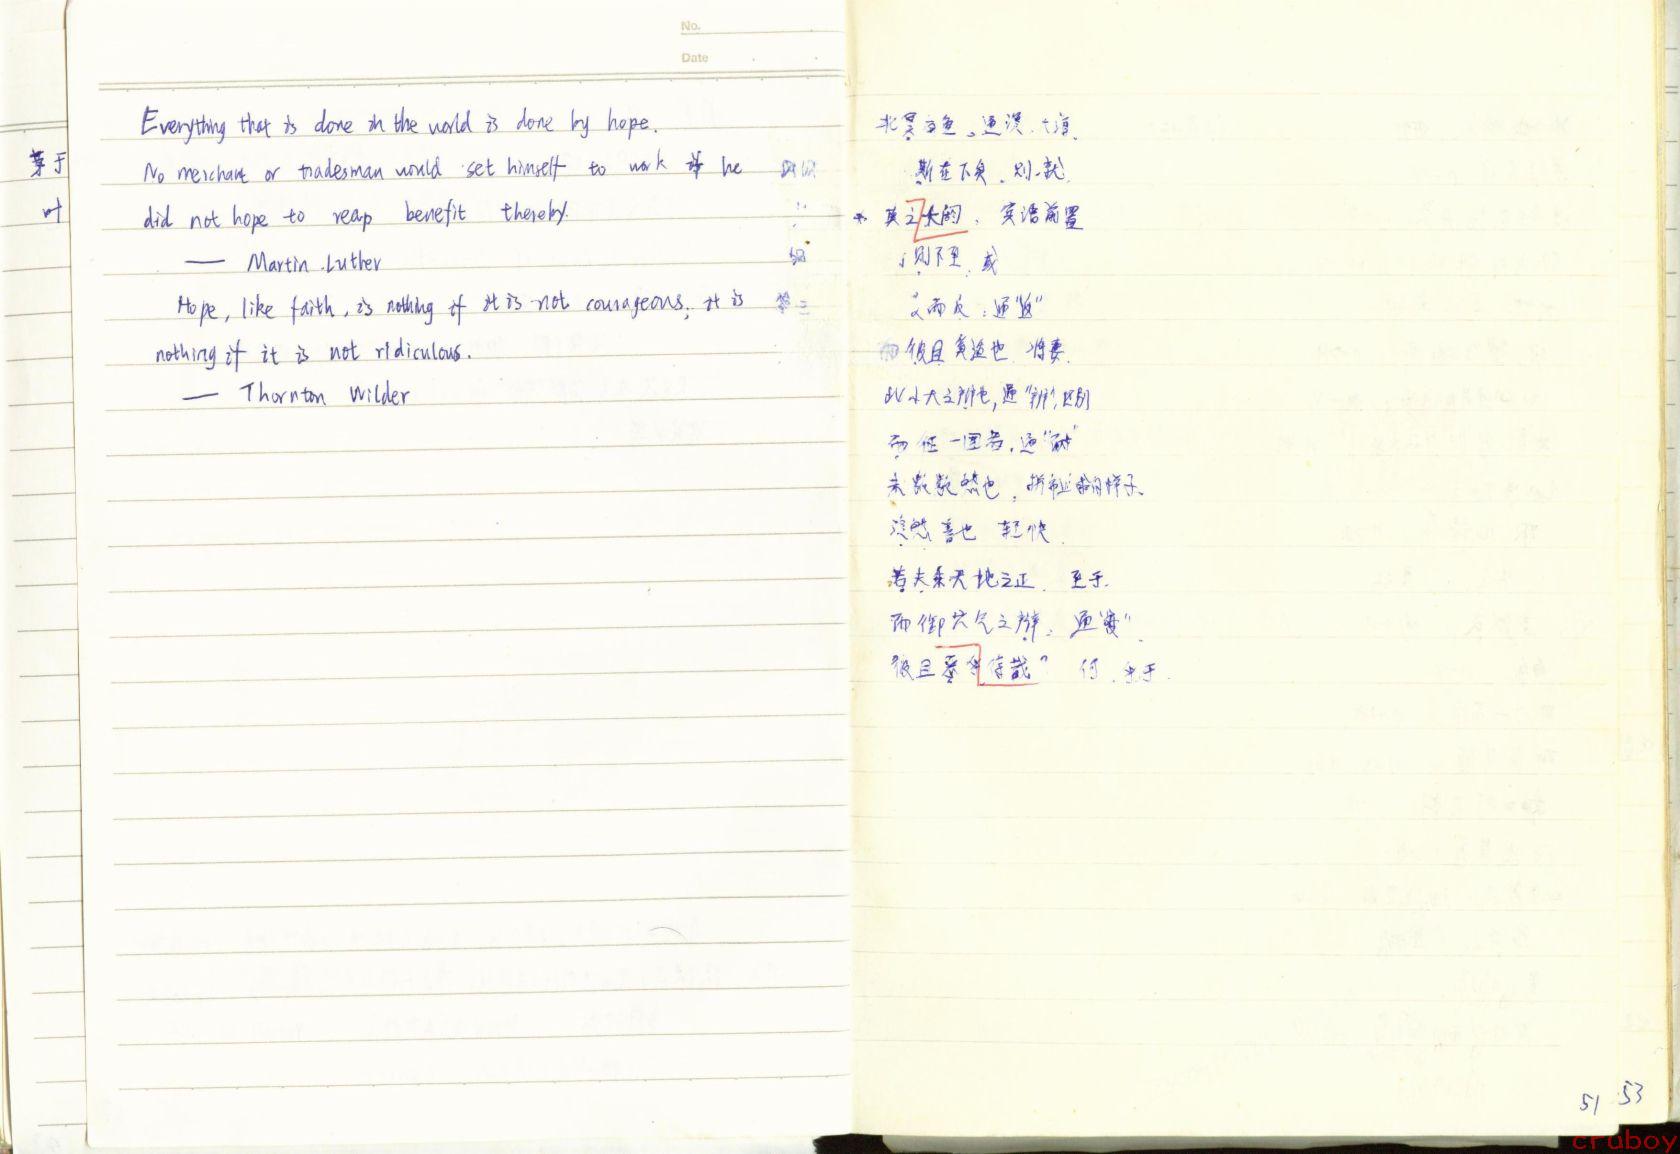 No.
Date
等于
叶
Everything that is done in the world is done by hope.
No merchant or tradesman would set himself to work if he
did not hope to reap benefit thereby.
—— Martin Luther
Hope, like faith, is nothing if it is not courageous; it is
nothing if it is not ridiculous.
—— Thornton Wilder
北冥有鱼,通溟,大海
斯在下矣,则,就
宾语前置
则不至,或
而反:通"返"
而彼且奚适也 将要
此小大之辩也,通"辨",区别
而征一国者,通"耐"
未数数然也,拼命追求的样子
泠然善也 轻快
若夫乘天地之正 至于
而御六气之辩:通"变"
彼且恶乎待哉? 何,乎于
51 53
cruboy